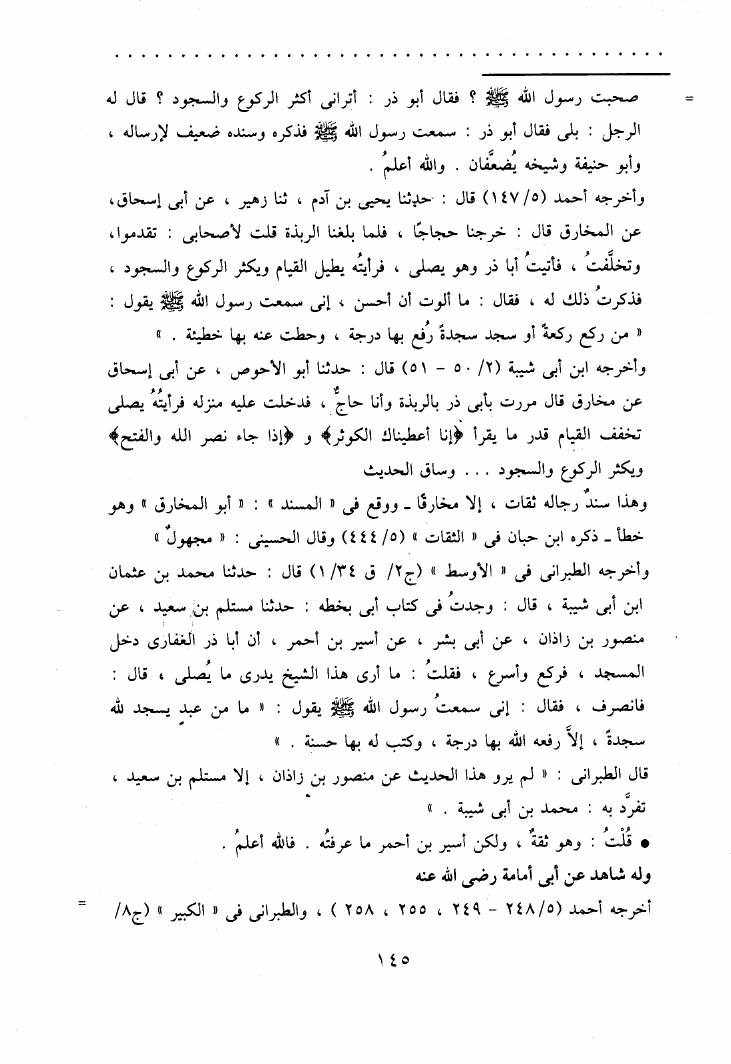 . . . . . . . . . . . . . . . . . . . . . . . . . . . . . . . . . . . . . . . .
= صحبت رسول الله ﷺ ؟ فقال أبو ذر : أترانى أكثر الركوع والسجود ؟ قال له
الرجل : بلى فقال أبو ذر : سمعت رسول الله ﷺ فذكره وسنده ضعيف لإرساله ،
وأبو حنيفة وشيخه يُضعَّفان . والله أعلمُ .
وأخرجه أحمد (٥/ ١٤٧) قال : حدثنا يحيى بن آدم ، ثنا زهير ، عن أبى إسحاق،
عن المخارق قال : خرجنا حجاجًا ، فلما بلغنا الربذة قلت لأصحابى : تقدموا،
وتخلَّفتُ ، فأتيتُ أبا ذر وهو يصلى ، فرأيتُه يطيل القيام ويكثر الركوع والسجود ،
فذكرتُ ذلك له ، فقال : ما ألوت أن أحسن ، إنى سمعت رسول الله ﷺ يقول :
« من ركع ركعةً أو سجد سجدةً رُفع بها درجة ، وحطت عنه بها خطيئة . »
وأخرجه ابن أبى شيبة (٢/ ٥٠ - ٥١) قال : حدثنا أبو الأحوص ، عن أبى إسحاق
عن مخارق قال مررت بأبى ذر بالربذة وأنا حاجٌّ ، فدخلت عليه منزله فرأيتُهُ يصلى
تخفف القيام قدر ما يقرأ ﴿إنا أعطيناك الكوثر﴾ و ﴿إذا جاء نصر الله والفتح﴾
ويكثر الركوع والسجود ... وساق الحديث
وهذا سندٌ رجاله ثقات ، إلا مخارقًا ـ ووقع فى « المسند » : « أبو المخارق » وهو
خطأ ـ ذكره ابن حبان فى « الثقات » (٥/ ٤٤٤) وقال الحسينى : « مجهولٌ »
وأخرجه الطبرانى فى « الأوسط » (ج٢/ ق ٣٤/ ١) قال : حدثنا محمد بن عثمان
ابن أبى شيبة ، قال : وجدتُ فى كتاب أبى بخطه : حدثنا مستلم بن سعيد ، عن
منصور بن زاذان ، عن أبى بشر ، عن أسير بن أحمر ، أن أبا ذر الغفارى دخل
المسجد ، فركع وأسرع ، فقلتُ : ما أرى هذا الشيخ يدرى ما يُصلى ، قال :
فانصرف ، فقال : إنى سمعتُ رسول الله ﷺ يقول : « ما من عبدٍ يسجد لله
سجدةً ، إلاَّ رفعه الله بها درجة ، وكتب له بها حسنة . »
قال الطبرانى : « لم يرو هذا الحديث عن منصور بن زاذان ، إلا مستلم بن سعيد ،
تفرَّد به : محمد بن أبى شيبة . »
● قُلْتُ : وهو ثقةٌ ، ولكن أسير بن أحمر ما عرفتُه . فالله أعلمُ .
وله شاهد عن أبى أمامة رضى الله عنه
أخرجه أحمد (٥/ ٢٤٨ - ٢٤٩ ، ٢٥٥ ، ٢٥٨ ) ، والطبرانى فى « الكبير » (ج٨/ =
١٤٥